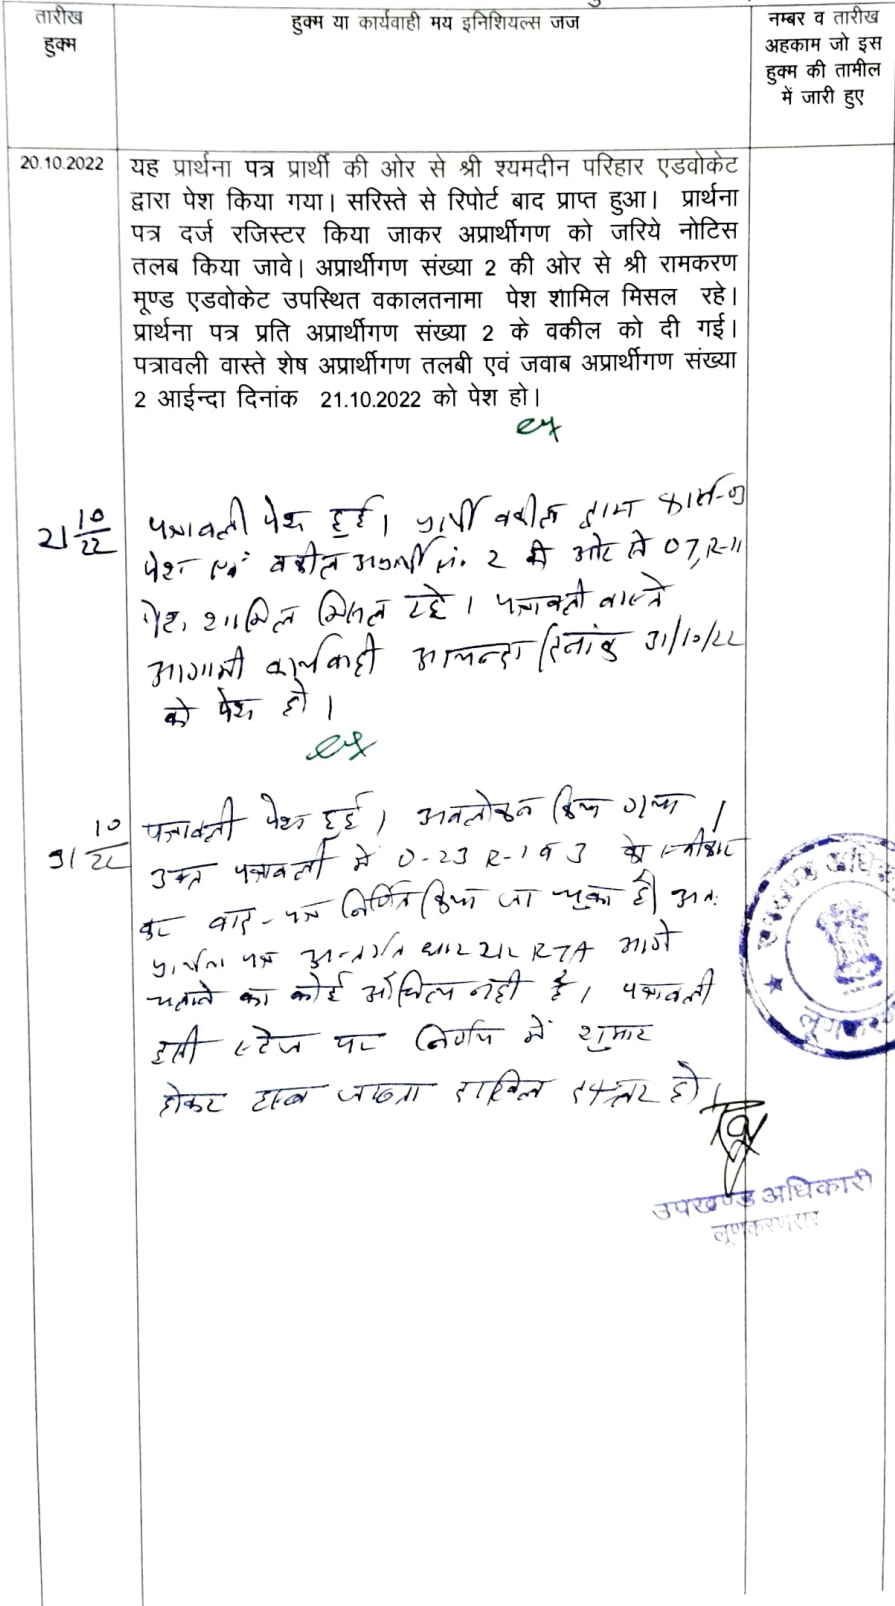 तारीख
हुक्म
हुक्म या कार्यवाही मय इनिशियल्स जज
नम्बर व तारीख
अहकाम जो इस
हुक्म की तामील
में जारी हुए
20.10.2022
यह प्रार्थना पत्र प्रार्थी की ओर से श्री श्यमदीन परिहार एडवोकेट
द्वारा पेश किया गया। सरिस्ते से रिपोर्ट बाद प्राप्त हुआ। प्रार्थना
पत्र दर्ज रजिस्टर किया जाकर अप्रार्थीगण को जरिये नोटिस
तलब किया जावे। अप्रार्थीगण संख्या 2 की ओर से श्री रामकरण
मूण्ड एडवोकेट उपस्थित वकालतनामा पेश शामिल मिसल रहे।
प्रार्थना पत्र प्रति अप्रार्थीगण संख्या 2 के वकील को दी गई।
पत्रावली वास्ते शेष अप्रार्थीगण तलबी एवं जवाब अप्रार्थीगण संख्या
2 आईन्दा दिनांक 21.10.2022 को पेश हो।
21 10/22
पत्रावली पेश हुई। प्रार्थी वकील द्वारा
पेश एवं वकील अप्रार्थी सं. 2 की ओर से 07, R-11
पेश शामिल मिसल रहे। पत्रावली वास्ते
आगामी कार्यवाही आईन्दा दिनांक 31/10/22
को पेश हो।
31 10/22
पत्रावली पेश हुई। अवलोकन किया गया।
उक्त पत्रावली में 0-23 R-1 व 3 को स्वीकार
कर वाद-पत्र निर्णित किया जा चुका है। अतः
प्रार्थना पत्र अन्तर्गत धारा 212 RTA आगे
चलाने का कोई औचित्य नही है। पत्रावली
इसी स्टेज पर निर्णय में शुमार
होकर बाद जाब्ता दाखिल दफ्तर हो।
उपखण्ड अधिकारी
लूणकरणसर
उपखण्ड अधिकारी
लूणकरणसर